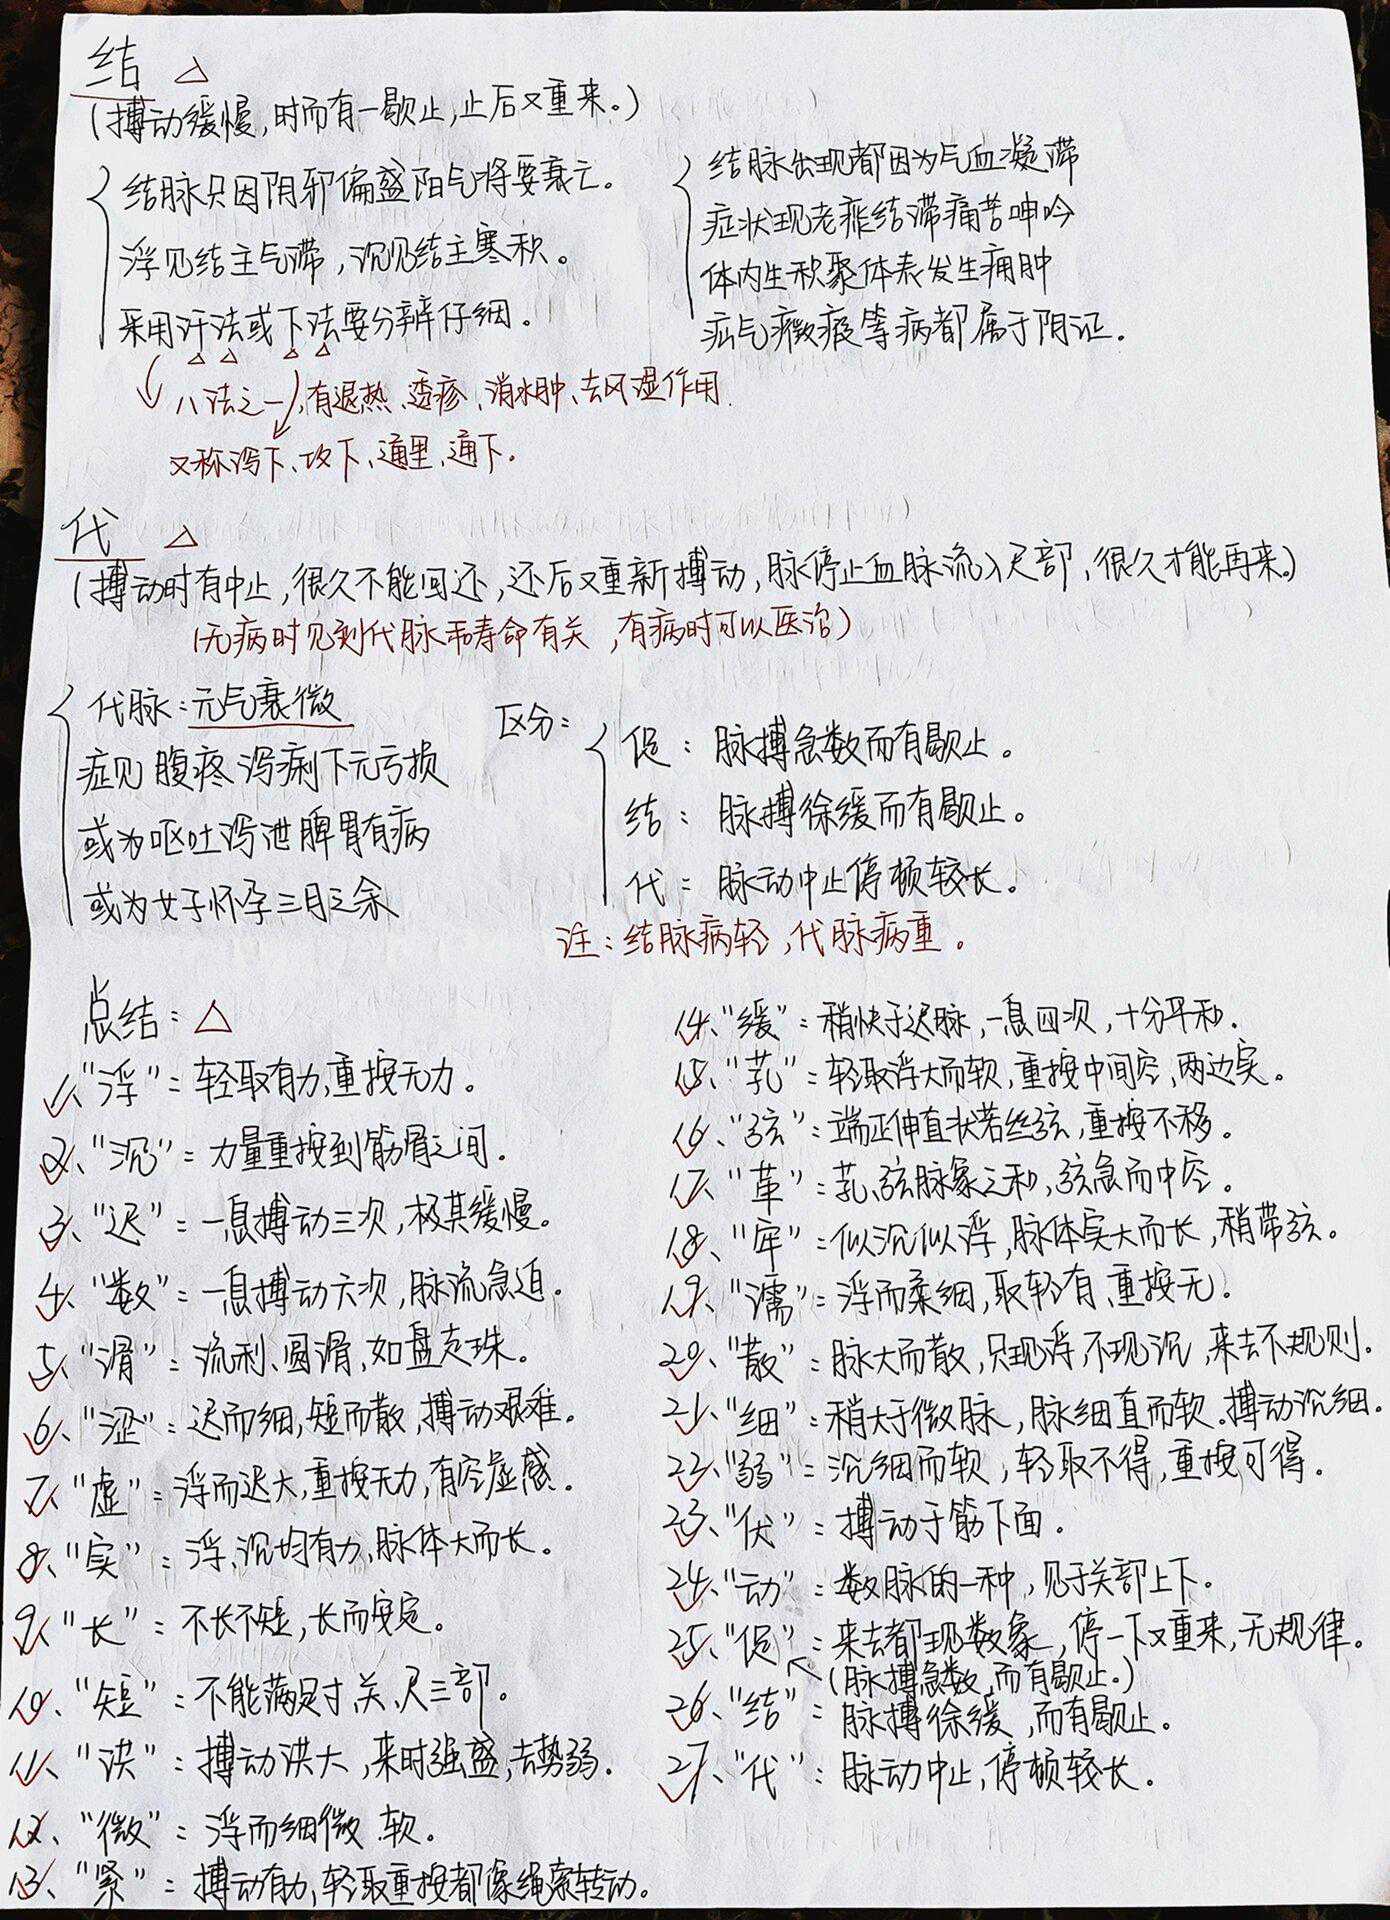 结 △
(搏动缓慢,时而有一歇止,止后又重来。)
结脉只因阴邪偏盛阳气将要衰亡。
浮见结主气滞,沉见结主寒积。
采用汗法或下法要分辨仔细。
结脉出现都因为气血凝滞
症状现老痰结滞痛苦呻吟
体内生积聚体表发生痈肿
疝气癥瘕等病都属于阴证。
八法之一,有退热、透疹、消水肿、去风湿作用.
又称泻下、攻下、通里、通下。
代 △
(搏动时有中止,很久不能回还,还后又重新搏动,脉停止血脉流入尺部,很久才能再来。)
(无病时见到代脉和寿命有关,有病时可以医治)
代脉:元气衰微
症见腹疼泻痢下元亏损
或为呕吐泻泄脾胃有病
或为女子怀孕三月之余
区分:
促: 脉搏急数而有歇止。
结: 脉搏徐缓而有歇止。
代: 脉动中止停顿较长。
注:结脉病轻,代脉病重。
总结:△
1、"浮":轻取有力,重按无力。
2、"沉":力量重按到筋骨之间.
3、"迟":一息搏动三次,极其缓慢。
4、"数":一息搏动六次,脉流急迫.
5、"滑":流利、圆滑,如盘走珠。
6、"涩":迟而细,短而散,搏动艰难。
7、"虚":浮而迟大,重按无力,有空虚感.
8、"实":浮、沉均有力,脉体大而长.
9、"长":不长不短,长而安定。
10、"短":不能满足寸、关、尺三部。
11、"洪":搏动洪大,来时强盛,去势弱.
12、"微":浮而细微.软。
13、"紧":搏动有力,轻取重按都像绳索转动。
14、"缓":稍快于迟脉,一息四次,十分平和.
15、"芤":轻取浮大而软,重按中间空,两边实。
16、"弦":端正伸直状若丝弦,重按不移。
17、"革":芤、弦脉象之和,弦急而中空。
18、"牢":似沉似浮,脉体实大而长,稍带弦。
19、"濡":浮而柔细,取轻有、重按无.
20、"散":脉大而散,只现浮,不现沉,来去不规则.
21、"细":稍大于微脉,脉细直而软.搏动沉细.
22、"弱":沉细而软,轻取不得,重按可得。
23、"伏":搏动于筋下面.
24、"动":数脉的一种,见于关部上下。
25、"促":来去都现数象,停一下又重来,无规律。
(脉搏急数,而有歇止。)
26、"结":脉搏徐缓,而有歇止。
27、"代":脉动中止,停顿较长。